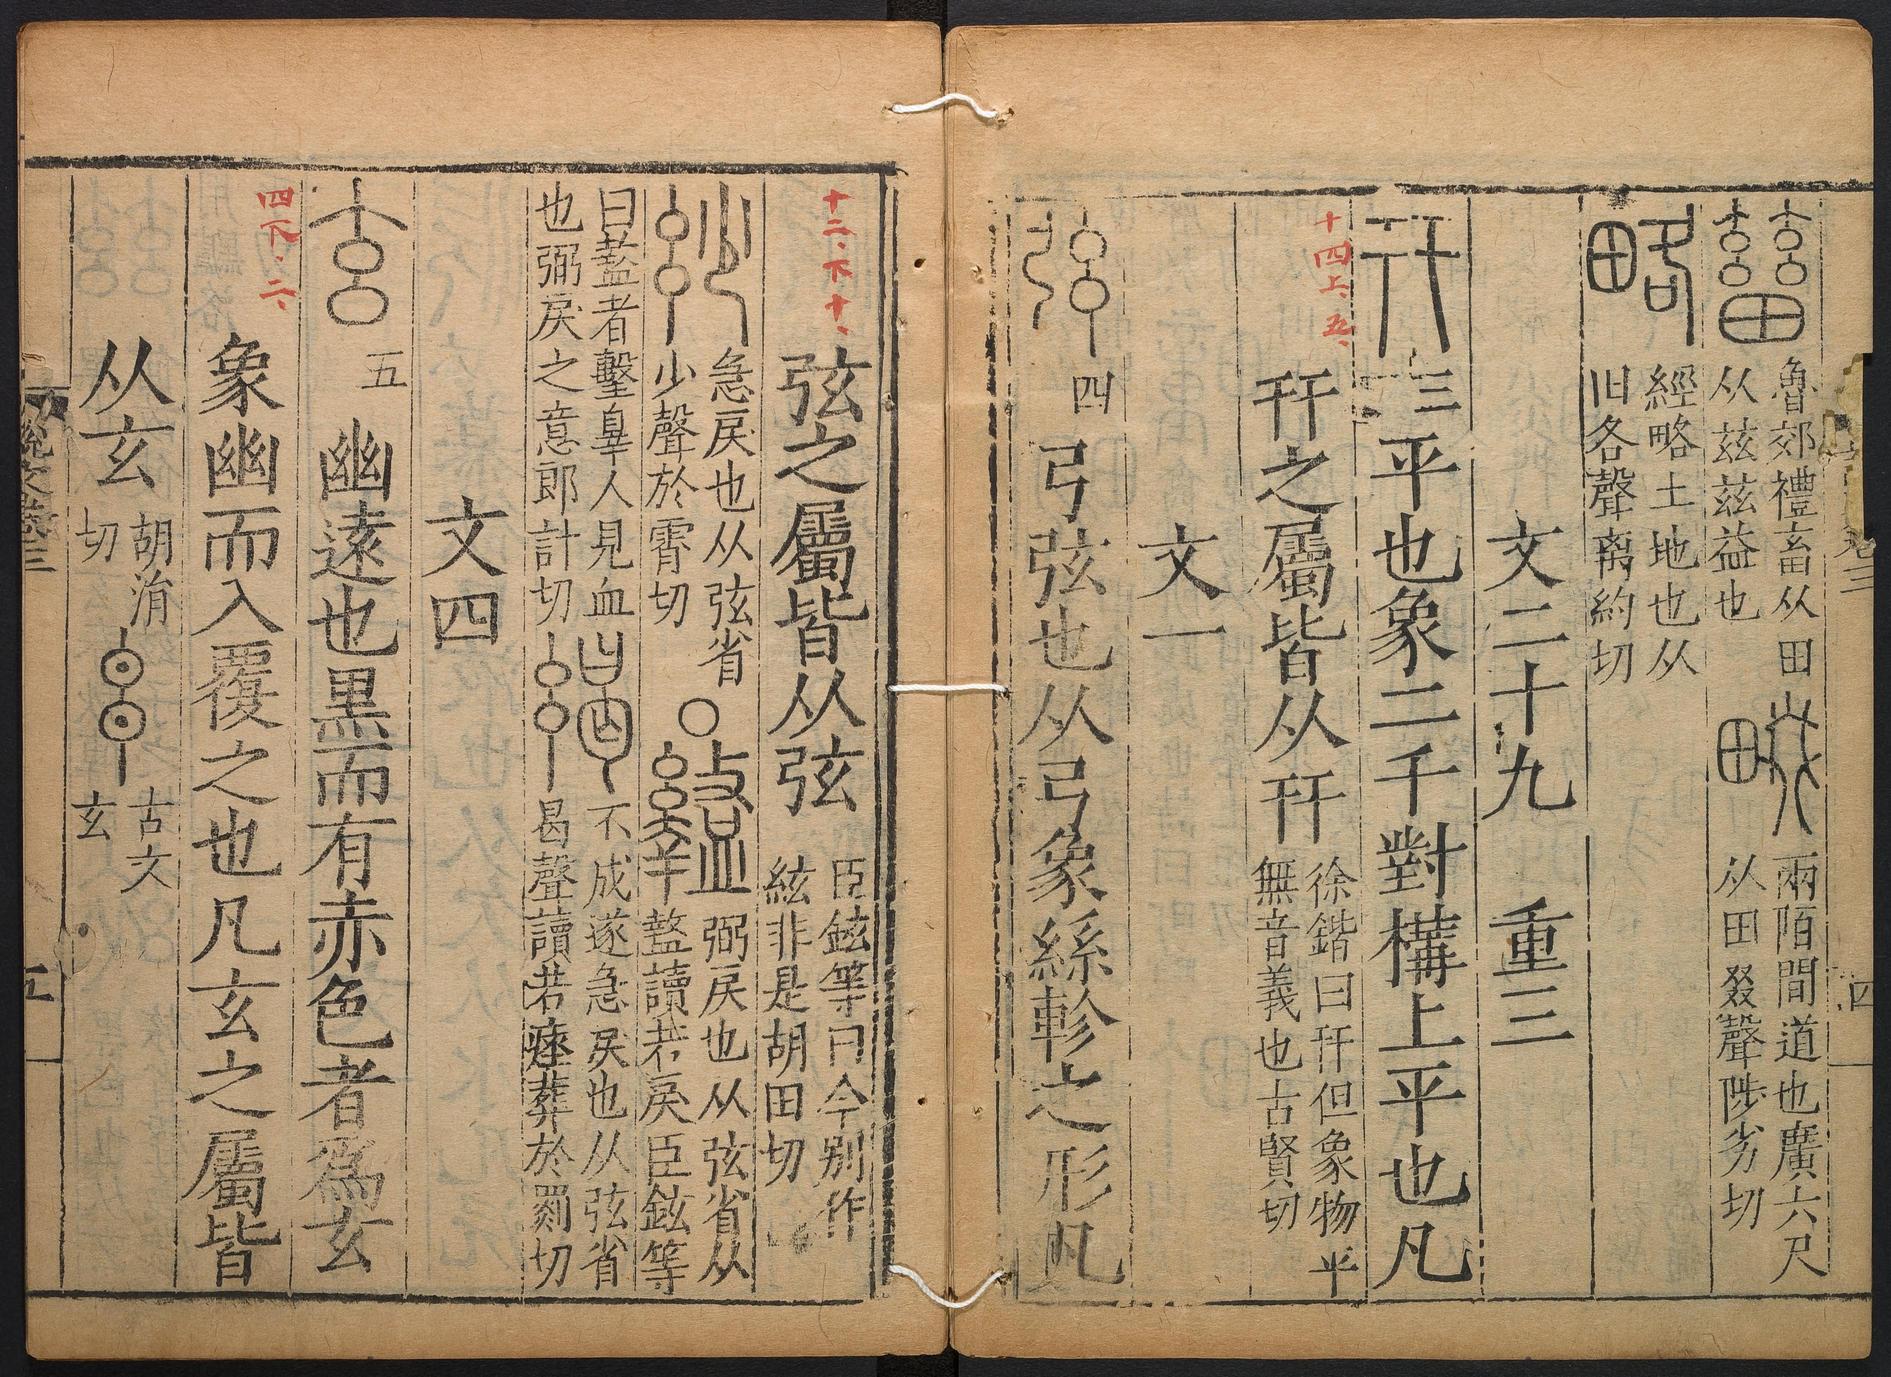 魯郊禮畜从田
从茲茲益也
兩陌間道也廣六尺
从田叕聲陟劣切
經略土地也从
田各聲离約切
文二十九 重三
幵 平也象二干對構上平也凡
十四上、五、
幵之屬皆从幵
徐鍇曰幵但象物平
無音義也古賢切
文一
四 弓弦也从弓象絲軫之形凡
十二、下十、
弦之屬皆从弦
臣鉉等曰今別作
絃非是胡田切
急戾也从弦省
少聲於霄切
○
弼戾也从弦省从
盭讀若戾臣鉉等
曰盭者擊辠人見血
也弼戾之意郎計切
不成遂急戾也从弦省
曷聲讀若瘞葬於罽切
文四
五 幽遠也黑而有赤色者爲玄
四下、二、
象幽而入覆之也凡玄之屬皆
从玄
胡涓
切
古文
玄
說文卷三
五